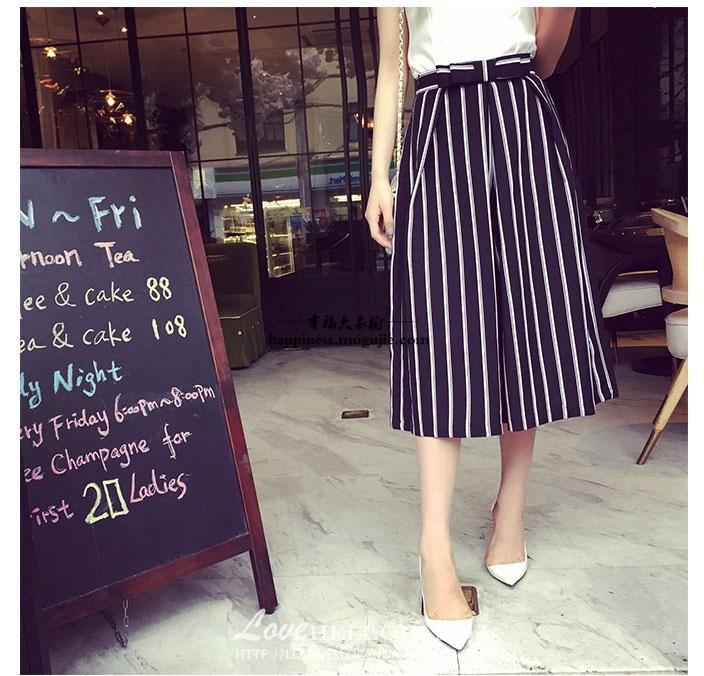 ~ Fri
Tea
& cake 88
& cake 108
Night
Friday 6:00pm~8:00pm
Champagne for
20 Ladies
幸福大衣橱
happiness.mogujie.com
Love
HTTP://